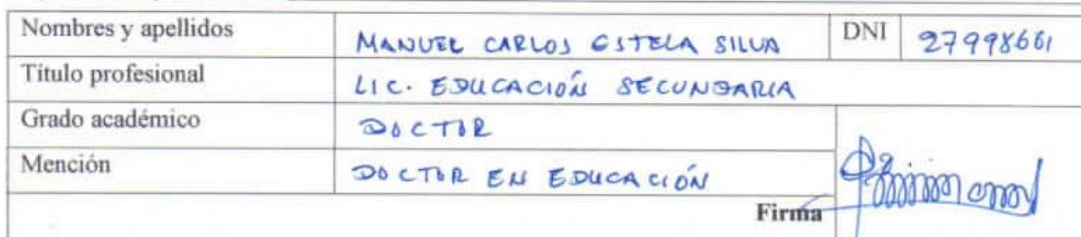 Nombres y apellidos MANUEL CARLOS ESTELA SILVA DNI 27998661
Título profesional LIC. EDUCACIÓN SECUNDARIA
Grado académico DOCTOR
Mención DOCTOR EN EDUCACIÓN
Firma